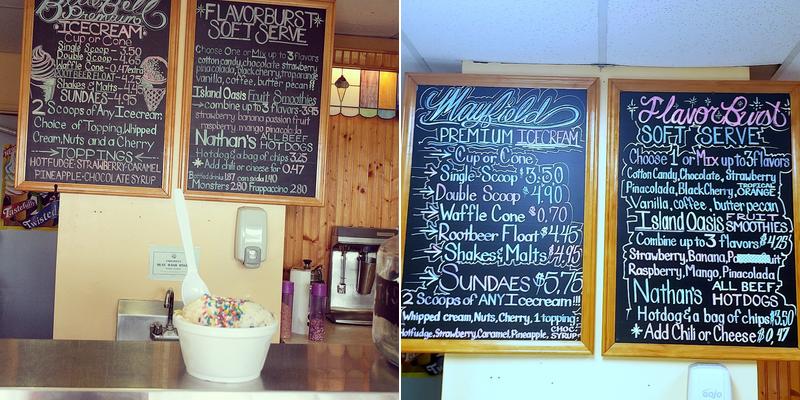 Premium
ICECREAM
Cup or Cone
Single Scoop - 3.50
Double Scoop - 4.65
Waffle Cone - 0.47extra
ROOT BEER FLOAT - 4.25
Shakes & Malts - 4.75
SUNDAES - 4.95
2 Scoops of Any Icecream
Choice of Topping, Whipped
Cream, Nuts and a Cherry
TOPPINGS
HOTFUDGE-STRAWBERRY-CARAMEL
PINEAPPLE-CHOCOLATE SYRUP
FLAVORBURST
SOFT SERVE
Choose One or Mix up to 3 flavors
cotton candy, chocolate strawberry
pinacolada, black cherry, trop. orange
vanilla, coffee, butter pecan!!
Island Oasis Fruit Smoothies
combine up to 3 flavors 3.95
strawberry banana passion fruit
raspberry mango pinacolada
Nathan's ALL BEEF HOTDOGS
Hotdog & bag of chips 3.25
Add chili or cheese for 0.47
Bottled drinks 1.87 can soda 1.40
Monsters 2.80 Frappuccino 2.80
Tastefully
Twisted
Mayfield
PREMIUM ICECREAM
Cup or Cone
Single Scoop $3.50
Double Scoop $4.90
Waffle Cone $0.70
Rootbeer Float $4.45
Shakes & Malts $4.95
SUNDAES $5.75
2 Scoops of ANY Icecream!!!
Whipped cream, Nuts, Cherry, 1 topping:
Hotfudge, Strawberry, Caramel, Pineapple, CHOC. SYRUP
Flavor Burst
SOFT SERVE
Choose 1 or Mix up to 3 flavors
Cotton Candy, Chocolate, Strawberry
Pinacolada, Black Cherry, TROPICAL ORANGE
Vanilla, coffee, butter pecan
Island Oasis FRUIT SMOOTHIES
Combine up to 3 flavors $4.25
Strawberry, Banana,
Raspberry, Mango, Pinacolada
Nathan's ALL BEEF HOTDOGS
Hotdog & a bag of chips $3.50
* Add Chili or Cheese $0.47
GOJO